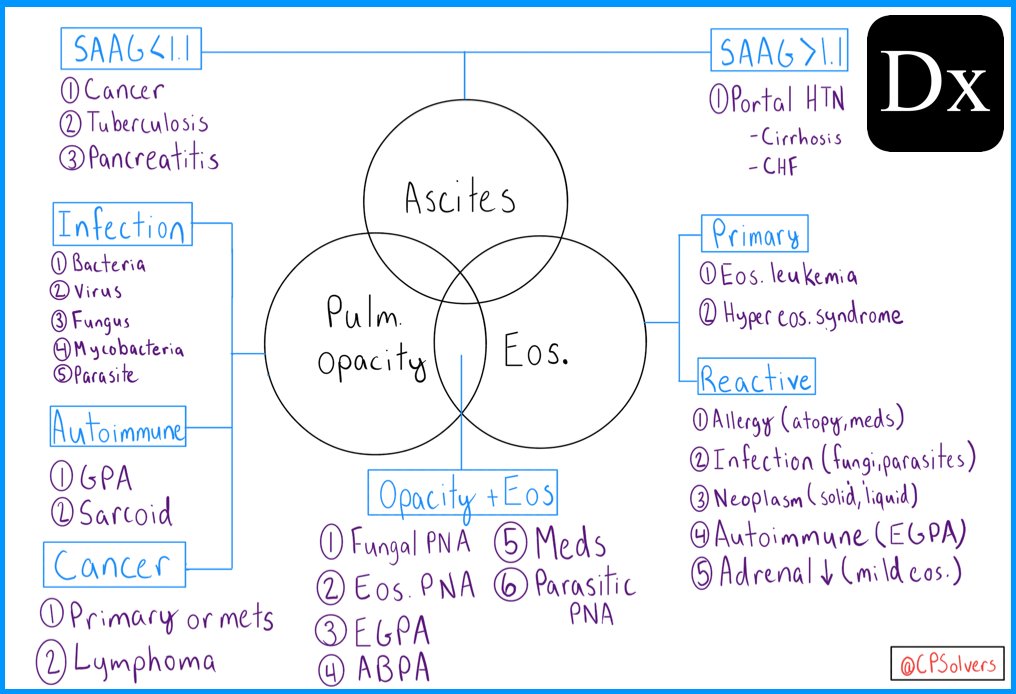 SAAG<1.1
① Cancer
② Tuberculosis
③ Pancreatitis
SAAG>1.1
① Portal HTN
- Cirrhosis
- CHF
Dx
Ascites
Pulm.
opacity
Eos.
Infection
① Bacteria
② Virus
③ Fungus
④ Mycobacteria
⑤ Parasite
Autoimmune
① GPA
② Sarcoid
Cancer
① Primary or mets
② Lymphoma
Opacity + Eos
① Fungal PNA
② Eos. PNA
③ EGPA
④ ABPA
⑤ Meds
⑥ Parasitic
PNA
Primary
① Eos. leukemia
② Hyper eos. syndrome
Reactive
① Allergy (atopy, meds)
② Infection (fungi, parasites)
③ Neoplasm (solid, liquid)
④ Autoimmune (EGPA)
⑤ Adrenal ↓ (mild eos.)
@CPSolvers